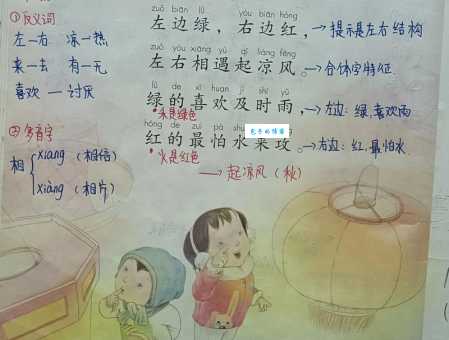 ①反义词
左—右 凉—热
来—去 有—无
喜欢—讨厌
②多音字
相{xiāng(相信)
xiàng(相片)
zuǒ biān lǜ yòu biān hóng
左边绿，右边红，→提示是左右结构
zuǒ yòu xiāng yù qǐ liáng fēng
左右相遇起凉风。→合体字特征
lǜ de xǐ huan jí shí yǔ
绿的喜欢及时雨，→左边:绿,喜欢雨
•禾是绿色
hóng de zuì pà shuǐ
红的最怕水来攻。→右边:红,最怕水
•火是红色
→起凉风(秋)